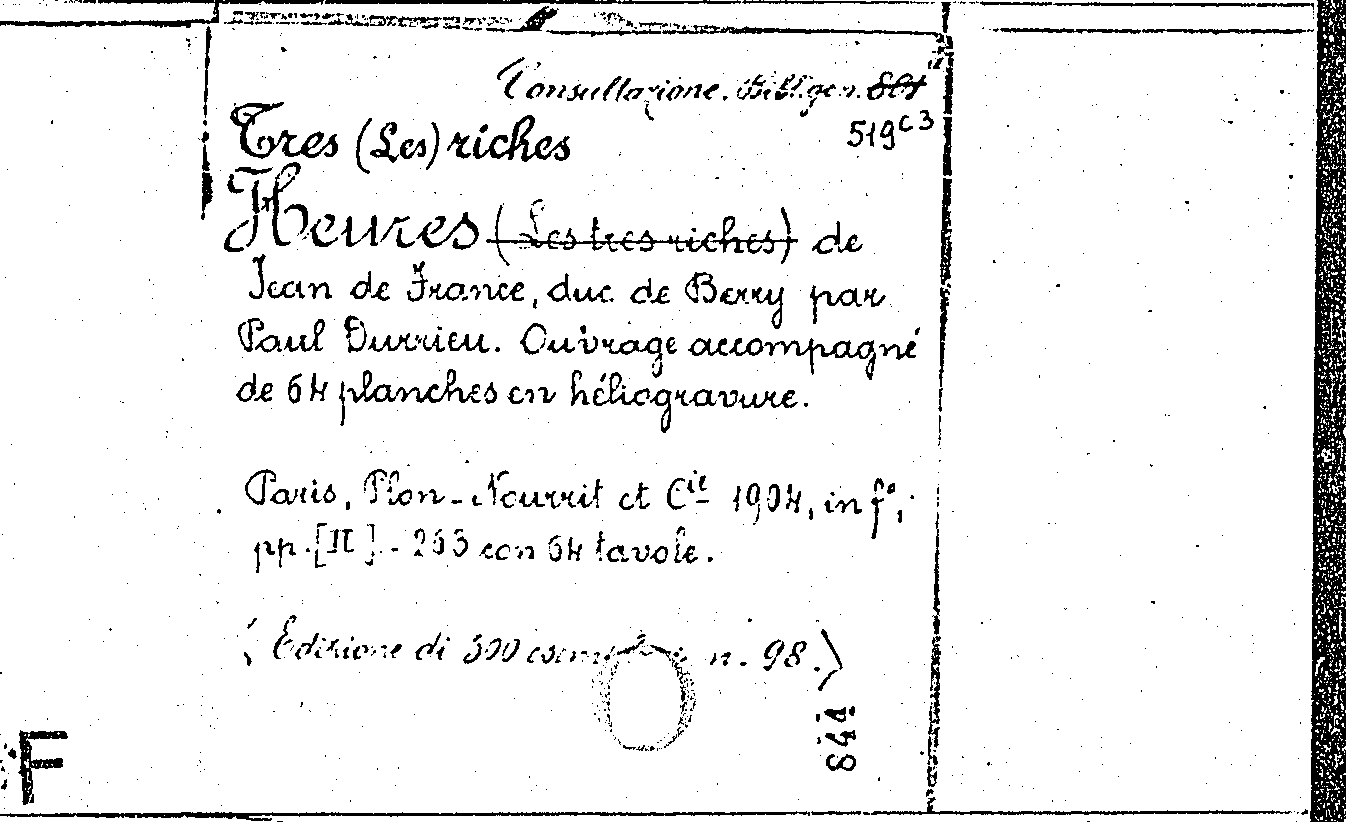 Consultazione. Bibl. gen.
519 C3
Tres (Les) riches
Heures (Les tres riches) de
Jean de France, duc de Berry par
Paul Durrieu. Ouvrage accompagné
de 64 planches en héliogravure.
Paris, Plon-Nourrit et Cie 1904, in f°,
pp. [II] - 263 con 64 tavole.
(Edizione di 300 n. 98.)
844
F